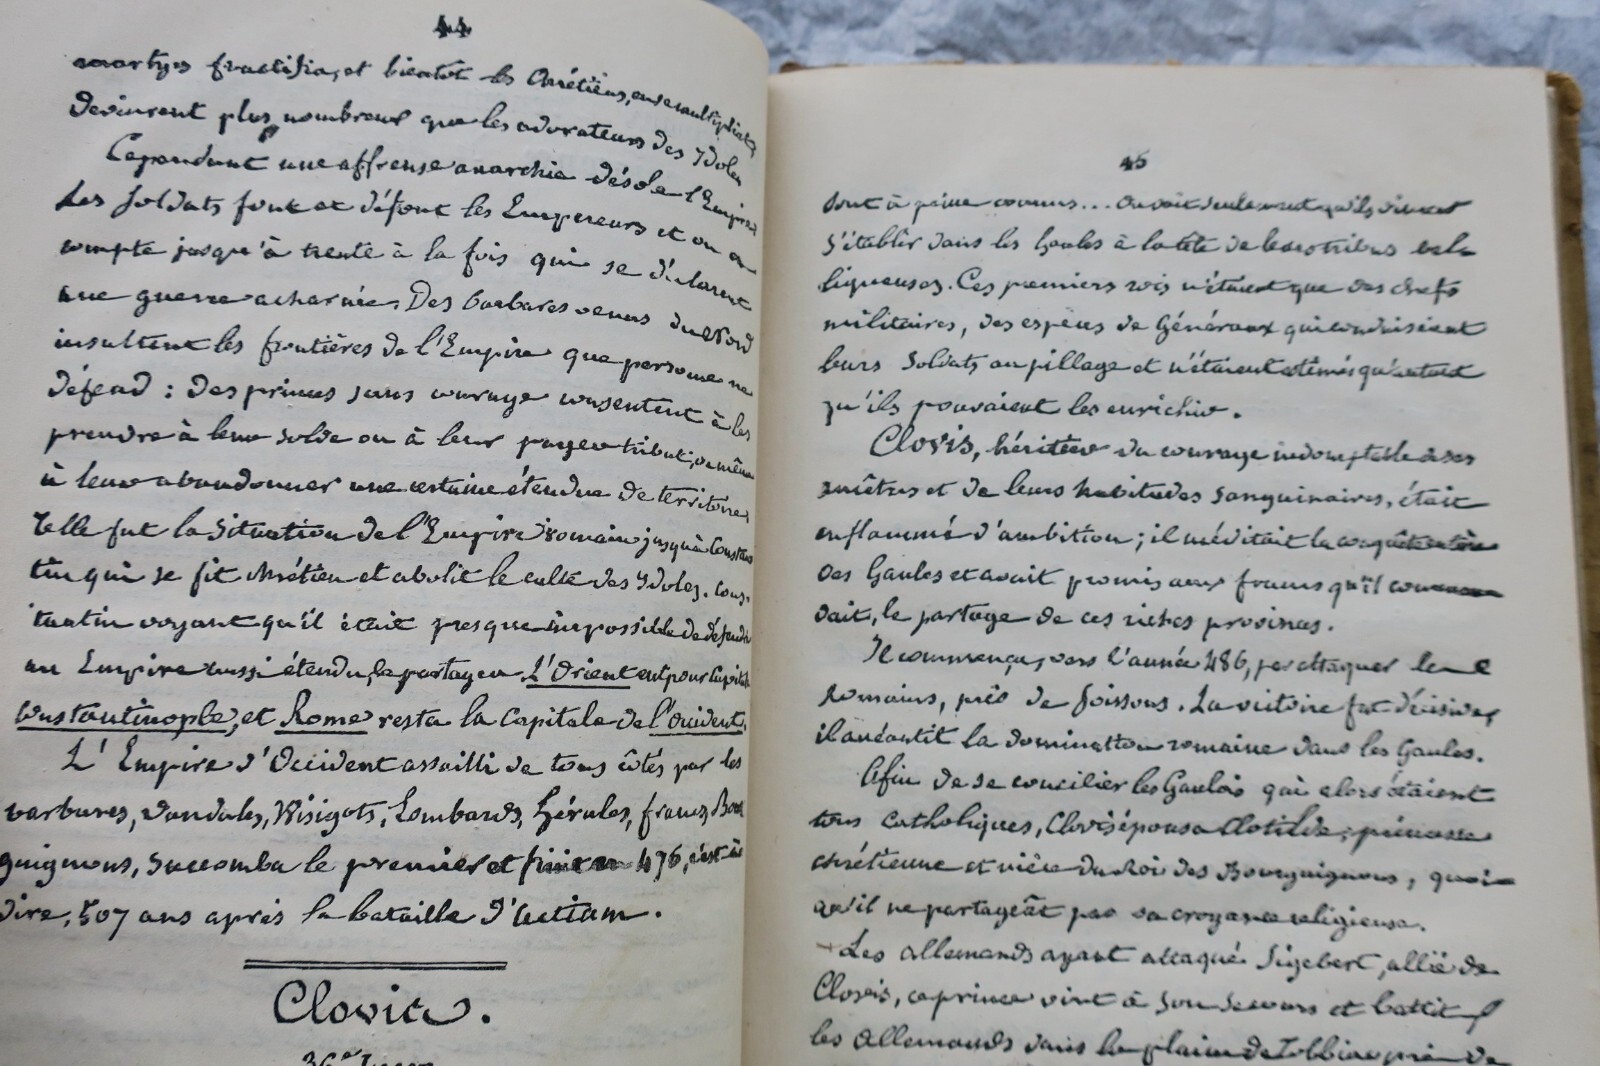 44
martyrs fructifia, et bientôt les Chrétiens, en se multipliant
devinrent plus nombreux que les adorateurs des Idoles
Cependant une affreuse anarchie désole l'Empire
Les soldats font et défont les Empereurs et on en
compte jusqu'à trente à la fois qui se déclarent
une guerre acharnée. Des barbares venus du Nord
insultent les frontières de l'Empire que personne ne
défend : des princes sans courage consentent à les
prendre à leur solde ou à leur payer tribut, ou même
à leur abandonner une certaine étendue de territoire
Telle fut la situation de l'Empire romain jusqu'à Constan
tin qui se fit chrétien et abolit le culte des Idoles. Cons-
tantin voyant qu'il était presque impossible de défendre
un Empire aussi étendu, le partagea. L'Orient eut pour Capitale
Constantinople, et Rome resta la Capitale de l'Occident.
L'Empire d'Occident assailli de tous côtés par les
barbares, Vandales, Wisigots, Lombards, Hérules, francs, Bour
guignons, succomba le premier et finit en 476, c'est à
dire, 507 ans après la bataille d'Actium.
Clovis.
36e
45
sont à peine connus... On voit seulement qu'ils vinrent
s'établir dans les Gaules à la tête de leurs tribus bel
liqueuses. Ces premiers rois n'étaient que des chefs
militaires, des espèces de Généraux qui conduisaient
leurs soldats au pillage et n'étaient estimés qu'autant
qu'ils pouvaient les enrichir.
Clovis, héritier du courage indomptable de ses
ancêtres et de leurs habitudes sanguinaires, était
enflammé d'ambition ; il méditait la conquête entière
des Gaules et avait promis aux francs qu'il comman
dait, le partage de ces riches provinces.
Il commença, vers l'année 486, par attaquer les
Romains, près de Soissons. La victoire fut décisive,
il anéantit la domination romaine dans les Gaules.
Afin de se concilier les Gaulois qui alors étaient
tous Catholiques, Clovis épousa Clotilde, princesse
chrétienne et nièce du Roi des Bourguignons, quoi-
qu'il ne partageât pas sa croyance religieuse.
Les Allemands ayant attaqué Sigebert, allié de
Clovis, ce prince vint à son secours et battit
les Allemands dans la plaine de Tolbiac près de